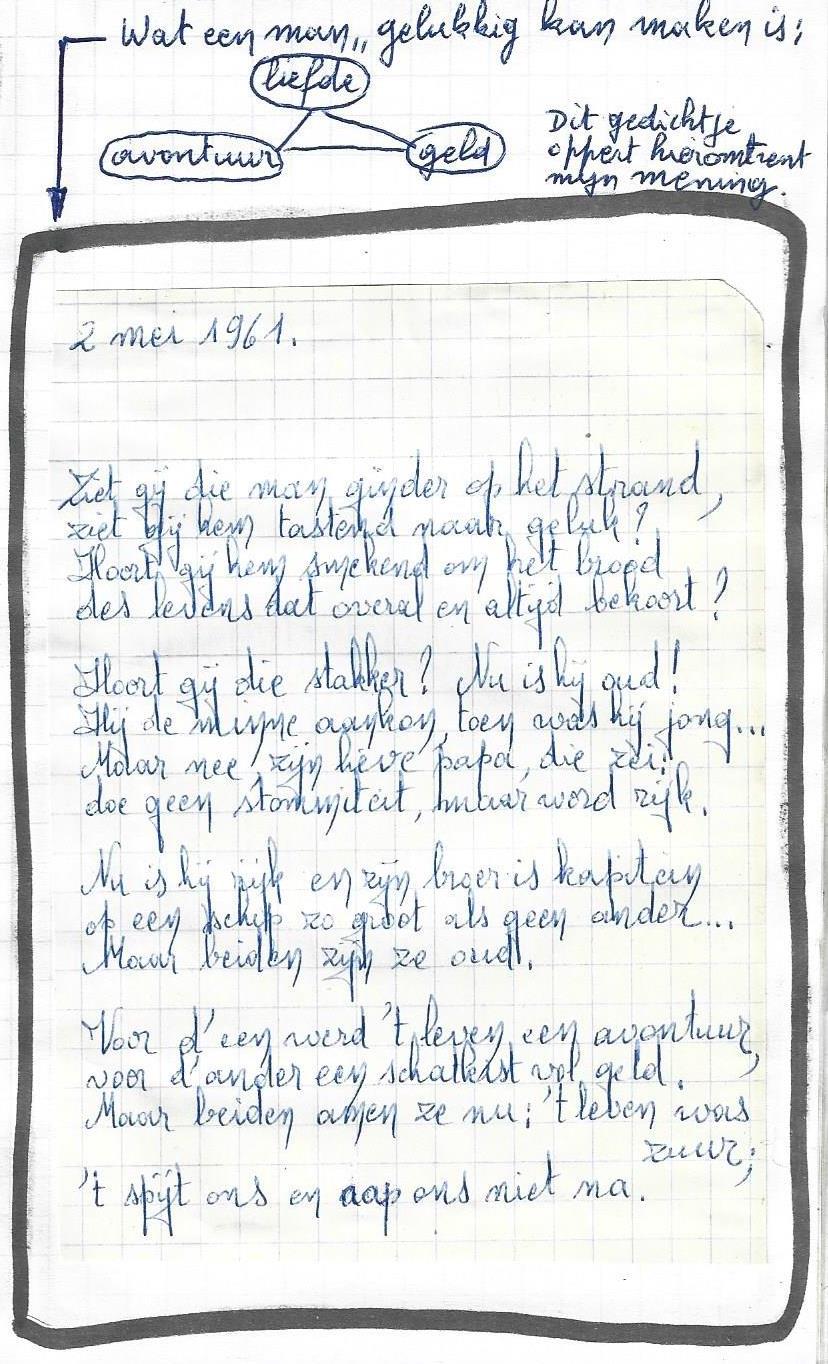 Wat een man „ gelukkig kan maken is:
liefde
avontuur
geld
Dit gedichtje
oppert hieromtrent
mijn mening.
2 mei 1961.
Ziet gij die man ginder op het strand,
ziet gij hem tastend naar geluk?
Hoort gij hem smekend om het brood
des levens dat overal en altijd bekoort?
Hoort gij die stakker? Nu is hij oud!
Hij de minne aankon, toen was hij jong...
Maar nee, zijn lieve papa, die zei:
doe geen stommiteit, maar word rijk.
Nu is hij rijk en zijn broer is kapitein
op een schip zo groot als geen ander...
Maar beiden zijn ze oud.
Voor d'een werd 't leven een avontuur,
voor d'ander een schatkist vol geld.
Maar beiden amen ze nu: 't leven was
zuur;
't spijt ons en aap ons niet na.